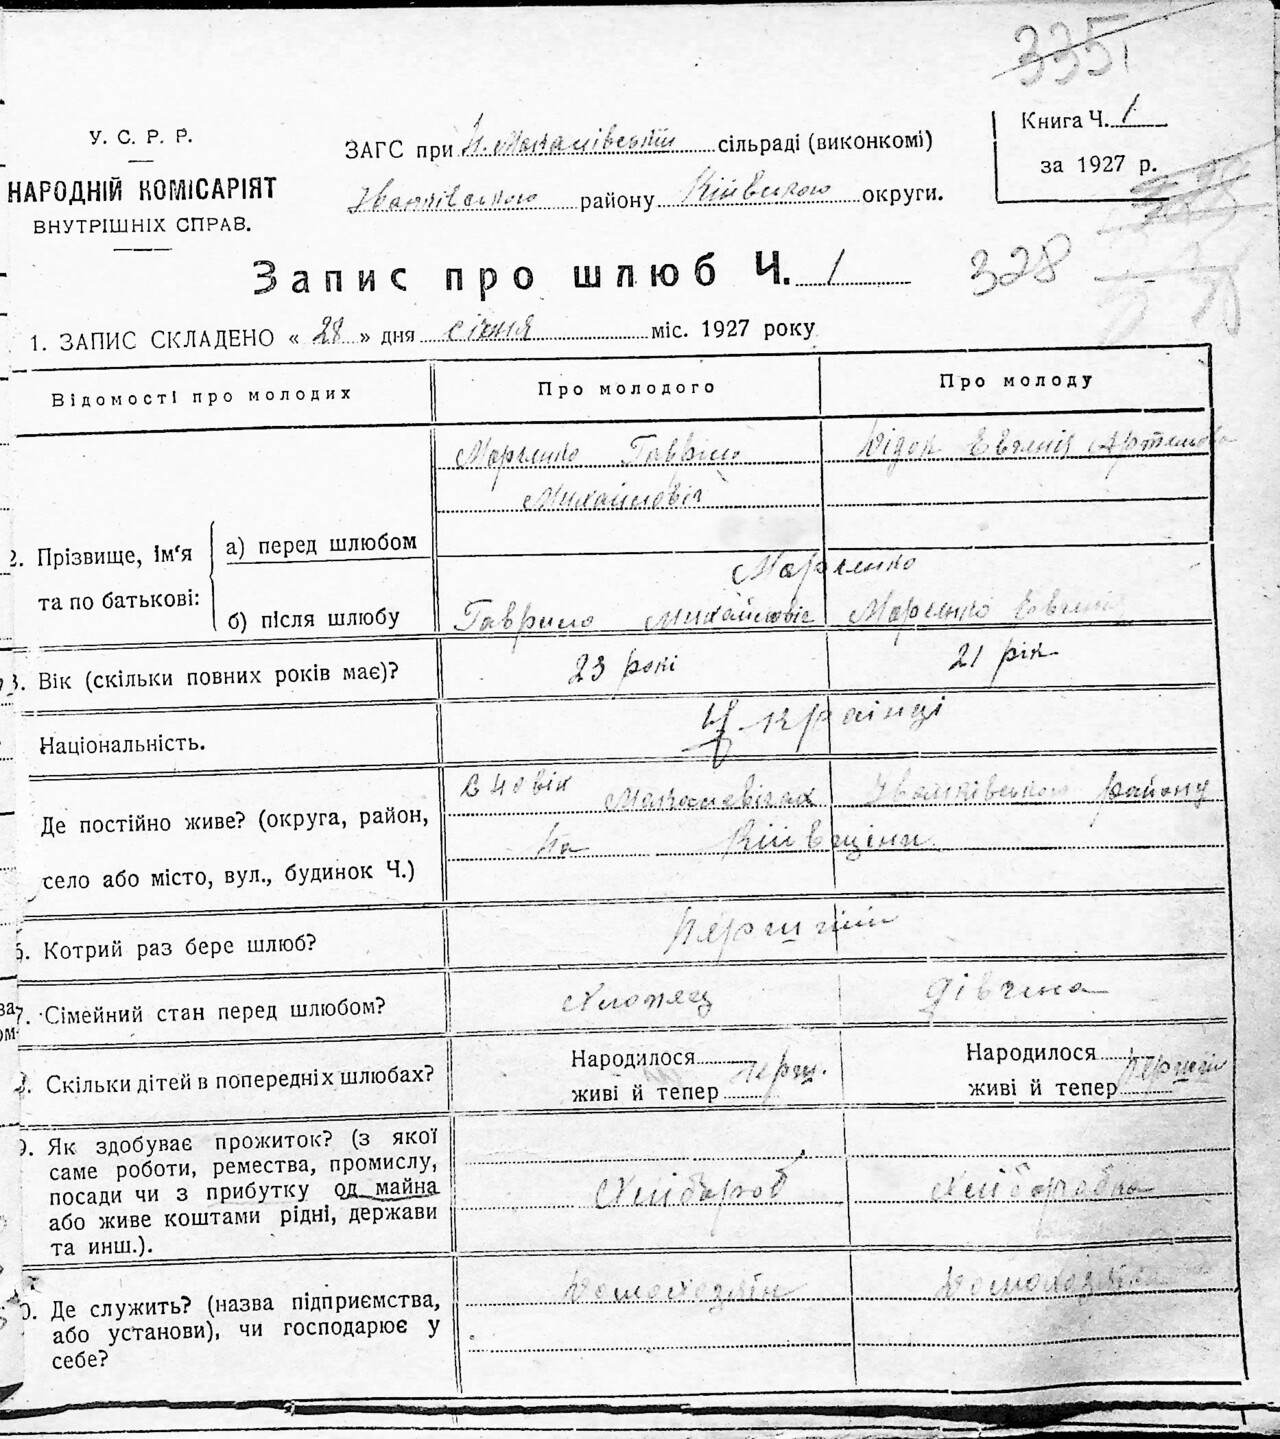 335
У. С. Р. Р.
НАРОДНІЙ КОМІСАРІЯТ
ВНУТРІШНІХ СПРАВ.
ЗАГС при Н. Макалівській сільраді (виконкомі)
Іванківського району Київською округи.
Книга Ч. 1
за 1927 р.
Запис про шлюб Ч. 1
328
1. ЗАПИС СКЛАДЕНО « 28 » дня січня міс. 1927 року
Відомості про молодих
Про молодого
Про молоду
Марченко Гаврило
Михайловіч
Дідок Евгенія Артемова
2. Прізвище, ім‘я
та по батькові:
а) перед шлюбом
б) після шлюбу
Марченко
Гаврило Михайловіч
Марченко Евгенія
3. Вік (скільки повних років має)?
23 рокі
21 рік
Національність.
Українці
Де постійно живе? (округа, район,
село або місто, вул., будинок Ч.)
Макалевічах Іванківського району
на Киівщіни
6. Котрий раз бере шлюб?
Першиій
7. Сімейний стан перед шлюбом?
Хлопец
дівчина
8. Скільки дітей в попередніх шлюбах?
Народилося
живі й тепер перш.
Народилося
живі й тепер першій
9. Як здобуває прожиток? (з якої
саме роботи, ремества, промислу,
посади чи з прибутку од майна
або живе коштами рідні, держави
та инш.).
Хлібороб
Хліборобка
0. Де служить? (назва підприємства,
або установи), чи господарює у
себе?
Домохозяїн